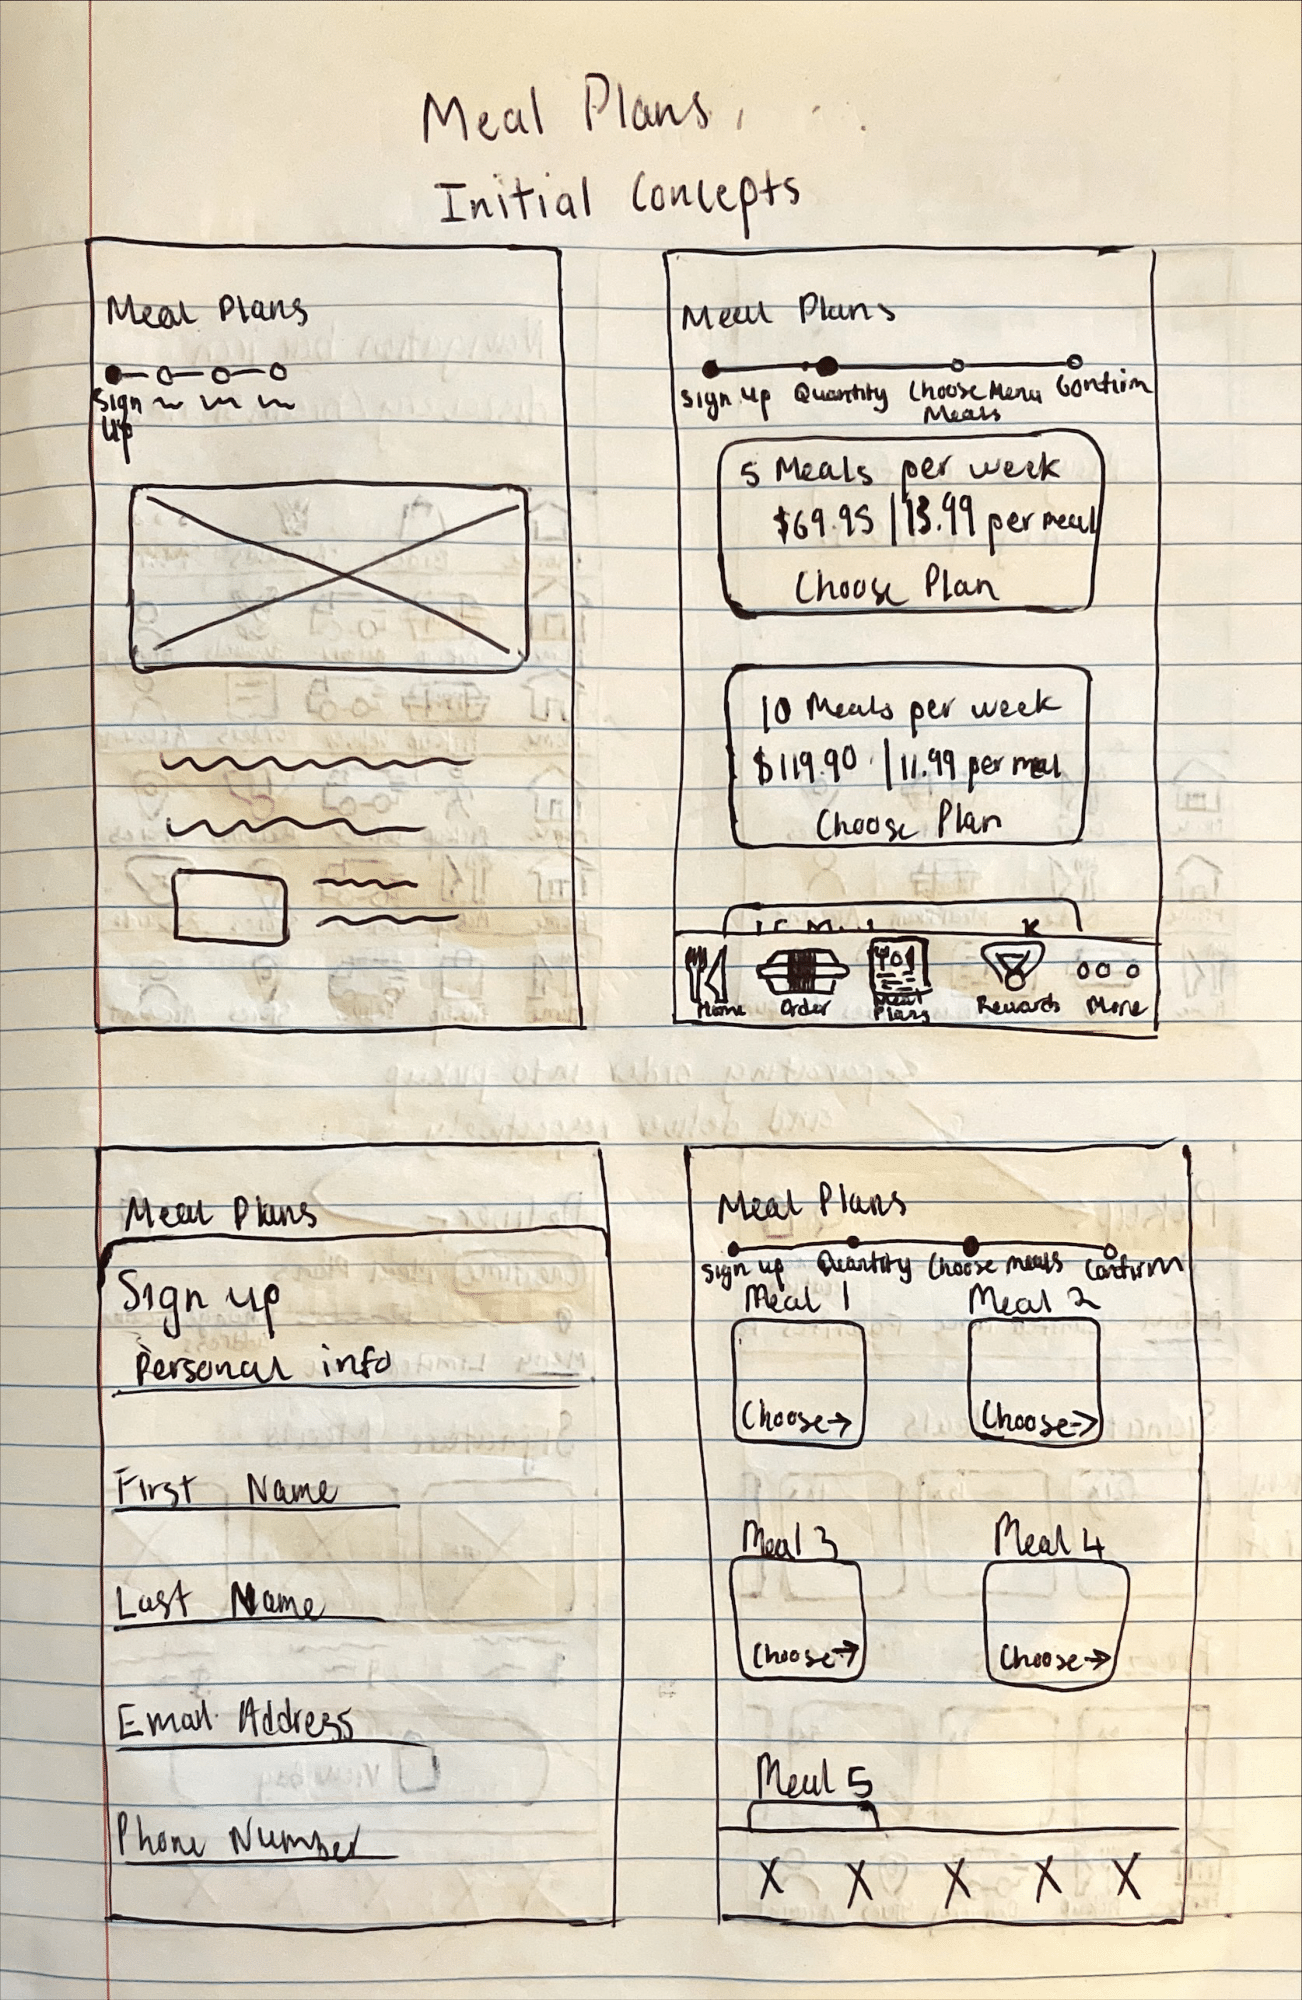 Meal Plans
Initial Concepts
Meal Plans
Sign
Up
Meal Plans
Sign up Quantity Choose Menu Confirm
Meals
5 Meals per week
$69.95 | 13.99 per meal
Choose Plan
10 Meals per week
$119.90 | 11.99 per meal
Choose Plan
Home Order Meal Plans Rewards More
Meal Plans
Sign up
Personal info
First Name
Last Name
Email Address
Phone Number
Meal Plans
Sign up Quantity Choose meals Confirm
Meal 1 Meal 2
Choose→ Choose→
Meal 3 Meal 4
Choose→ Choose→
Meal 5
X X X X X